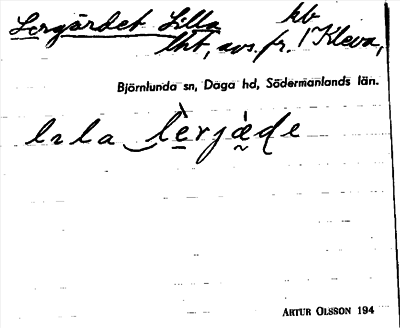 Lergärdet Lilla kb
lht, avs. fr. 1 Kleva,
Björnlunda sn, Daga hd, Södermanlands län.
lɩla lè̲rjæ̀de
ARTUR OLSSON 194